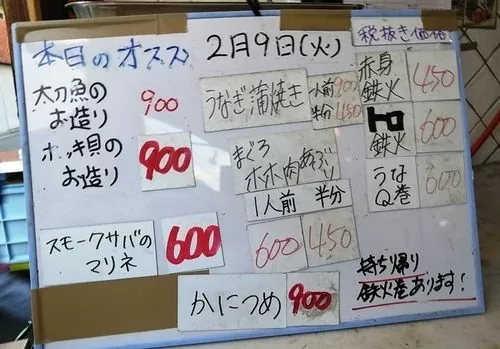 本日のオススメ
2月9日(火)
税抜き価格
太刀魚の
お造り
900
ホッキ貝の
お造り
900
スモークサバの
マリネ
600
うなぎ蒲焼き
1人前 900
半分 450
まぐろ
ホホ肉あぶり
1人前 半分
600 450
かにつめ 900
赤身
鉄火
450
トロ
鉄火
600
うな
Q巻
600
持ち帰り
鉄火巻あります!